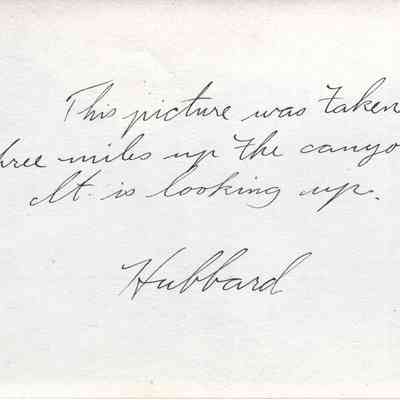 This picture was taken
hree miles up the canyo
It is looking up.
Hubbard